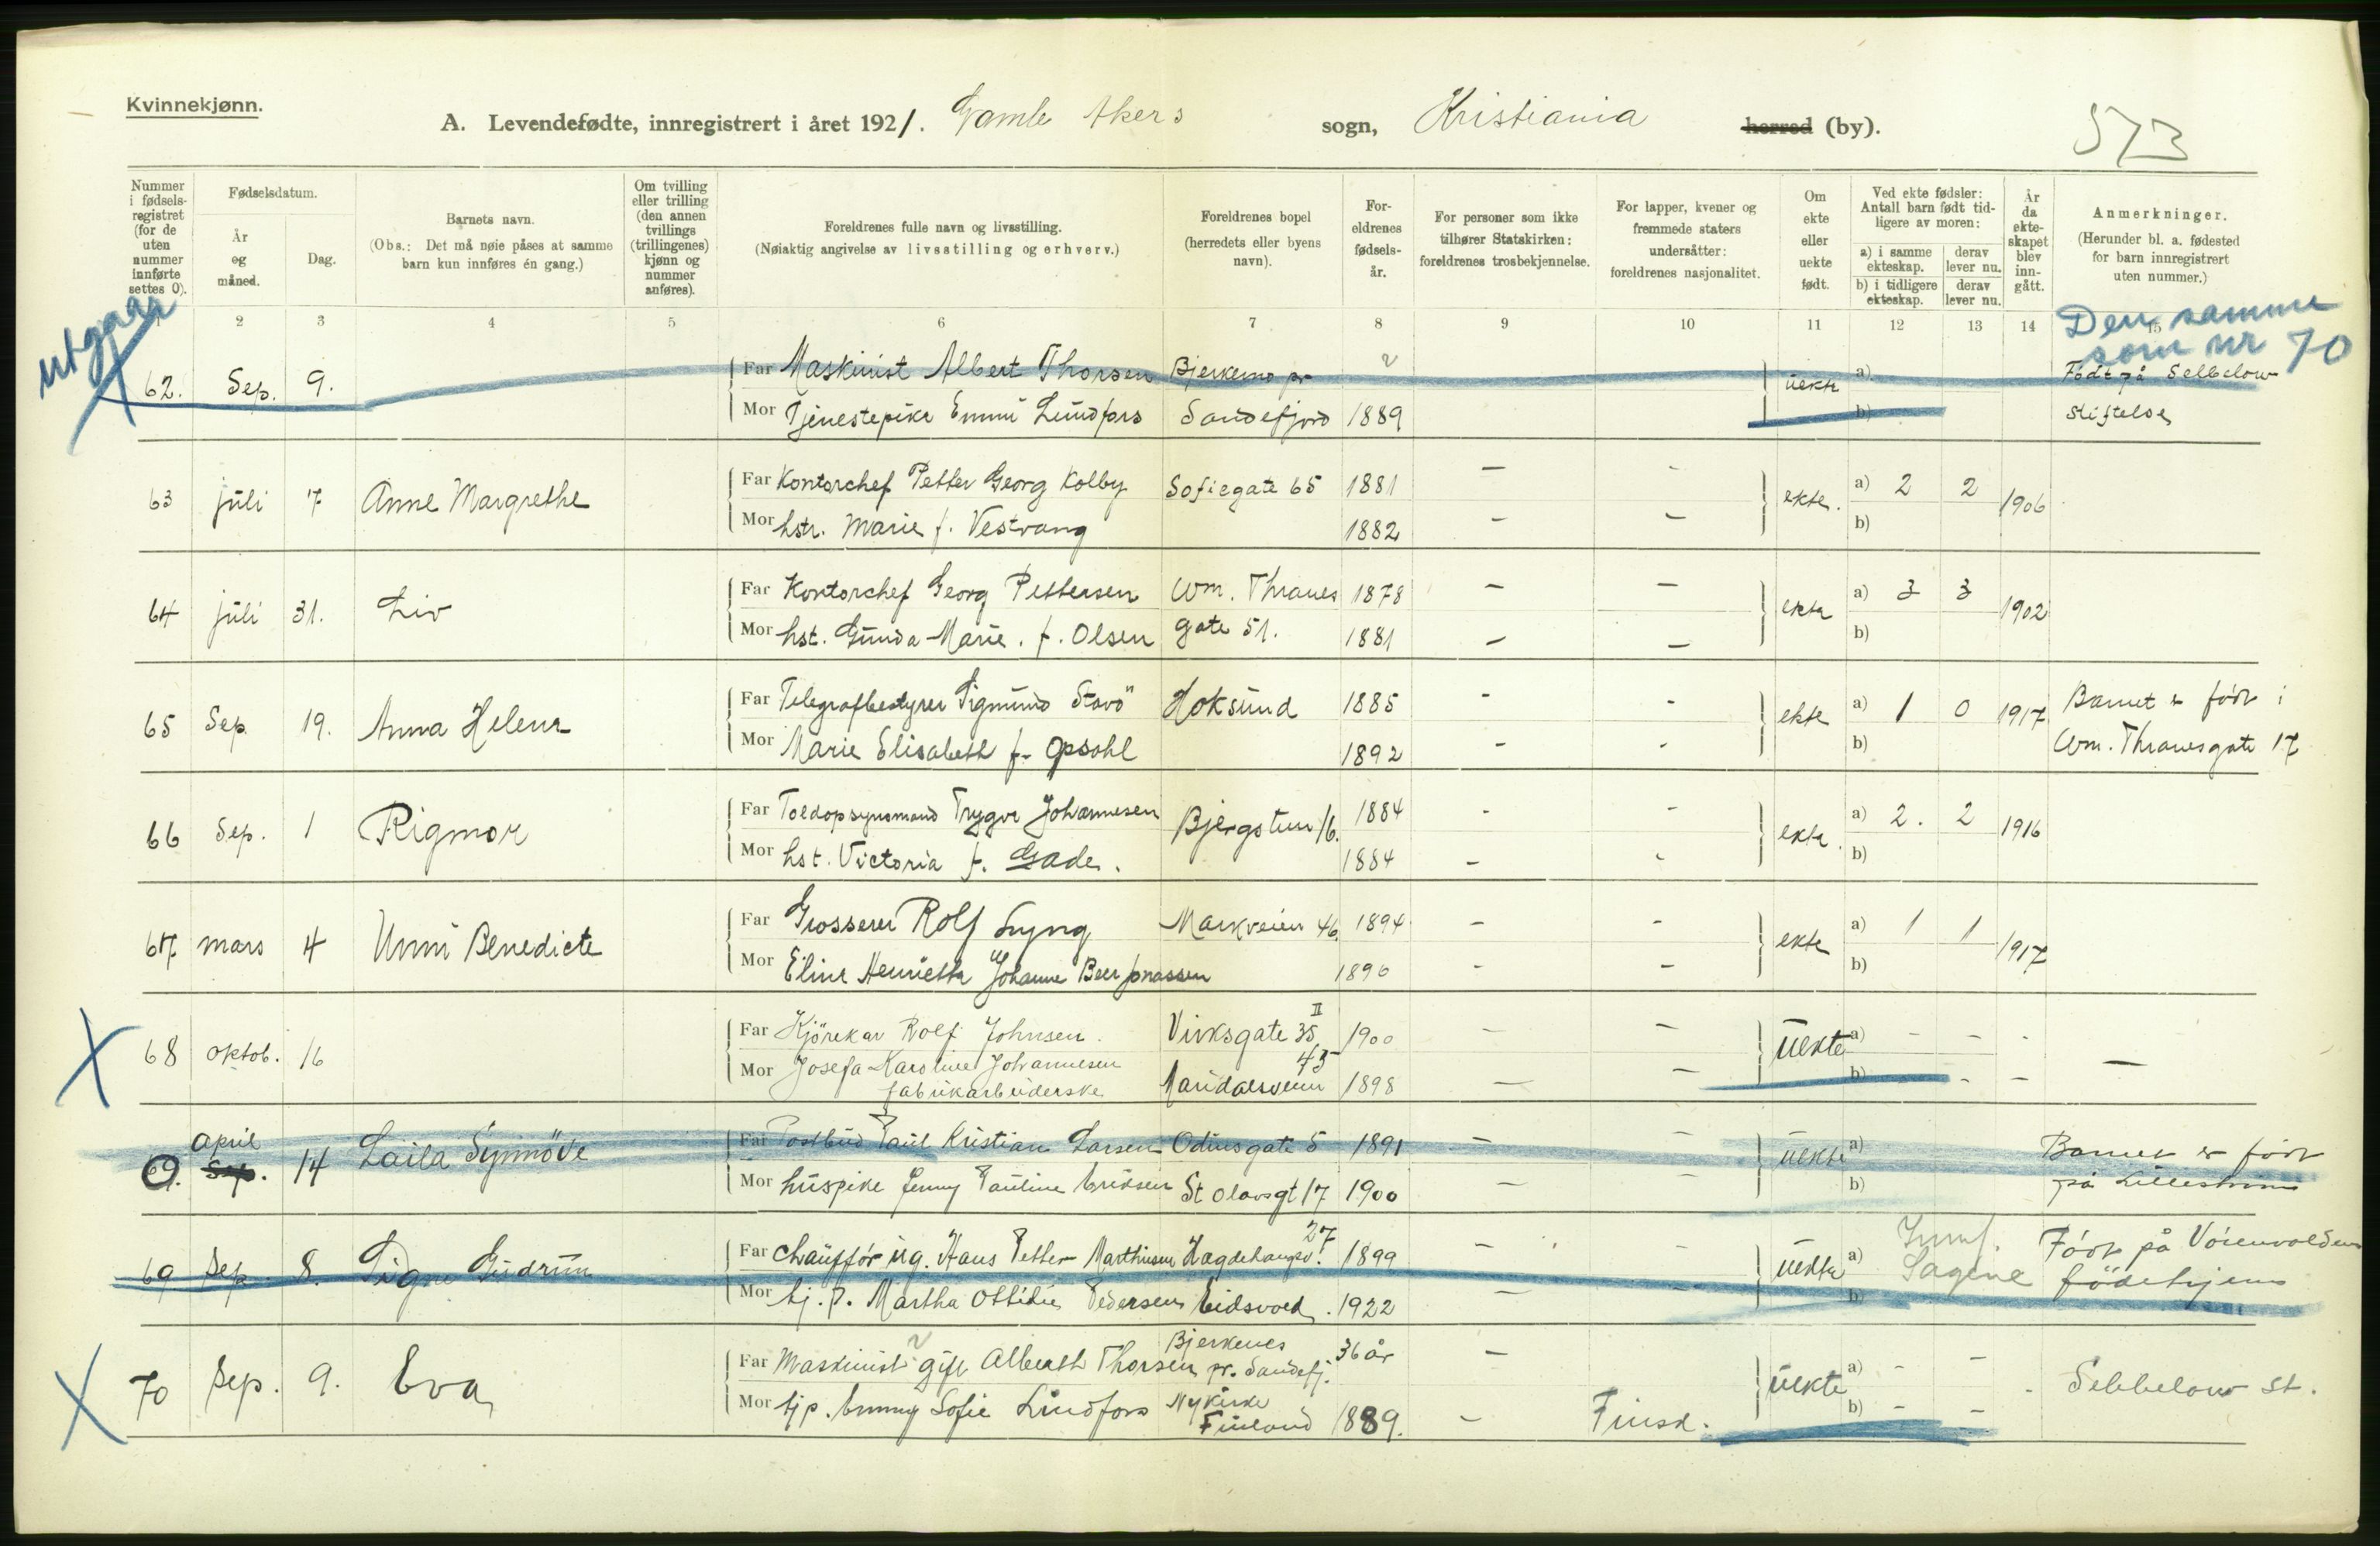 Kvinnekjønn.
A. Levendefødte, innregistrert i året 1921. Gamle Akers sogn, Kristiania herred (by).
573
Nummer i fødselsregistret (for de uten nummer innførte settes 0).
Fødselsdatum.
År og måned.
Dag.
Barnets navn.
(Obs.: Det må nøie påses at samme barn kun innføres én gang.)
Om tvilling eller trilling (den annen tvillings (trillingenes) kjønn og nummer anføres).
Foreldrenes fulle navn og livsstilling.
(Nøiaktig angivelse av livsstilling og erhverv.)
Foreldrenes bopel (herredets eller byens navn).
Foreldrenes fødselsår.
For personer som ikke tilhører Statskirken: foreldrenes trosbekjennelse.
For lapper, kvener og fremmede staters undersåtter: foreldrenes nasjonalitet.
Om ekte eller uekte født.
Ved ekte fødsler: Antall barn født tidligere av moren:
a) i samme ekteskap. derav lever nu.
b) i tidligere ekteskap. derav lever nu.
År da ekteskapet blev inngått.
Anmerkninger.
(Herunder bl. a. fødested for barn innregistrert uten nummer.)
1 2 3 4 5 6 7 8 9 10 11 12 13 14 15
utgaar
Den samme
som nr 70
62. Sep. 9. Far Maskinist Albert Thorsen Bjerkeno pr uekte a) Födt på Sebbelow
Mor Tjenestepike Emmi Lindfors Sandefjord 1889 b) stiftelse
63 juli 7 Anne Margrethe Far Kontorchef Petter Georg Kolby Sofiegate 65 1881 — - ekte. a) 2 2 1906
Mor hstr. Marie f. Vestvang 1882 — — b)
64 juli 31. Liv Far Kontorchef Georg Pettersen Wm. Thranes 1878 — — ekte a) 3 3 1902
Mor hst. Gunda Marie. f. Olsen gate 51. 1881 — — b)
65 Sep. 19. Anna Helene Far Telegrafbestyrer Sigmund Stavö Hoksund 1885 - - ekte a) 1 0 1917 Barnet er födt i
Mor Marie Elisabeth f. Opsahl 1892 - - b) Wm. Thranesgate 17
66 Sep. 1 Rigmor Far Toldopsynsmand Trygve Johannesen Bjergstien 16. 1884 - - ekte a) 2. 2 1916
Mor hst. Victoria f. Gade. 1884 - - b)
67. mars 4 Unni Benedicte Far Grosserer Rolf Lyng Markveien 46. 1894 - - ekte a) 1 1 1917
Mor Eline Henriette Johanne Beer Jonassen 1896 - - b)
68 oktob. 16 Far Kjörekar Rolf Johnsen. Virksgate 35 II 1900 — — uekte a) - - -
Mor Josefa Karoline Johannesen Maridalsveien 45 1898 — — b) - - —
fabrikarbeiderske
April
69. Sep. 14 Laila Synnöve Far Postbud Paul Kristian Larsen Odinsgate 5 1891 — — uekte a) Barnet er födt
Mor huspike Jenny Pauline Eriksen St Olavsgt 17 1900 — — b) på Lilleström
69 Sep. 8. Signe Gudrun Far Chauffór ug. Hans Petter Marthinsen Hægdehaugsv. 27 1899 - - uekte a) Jnnf. Födt på Vöienvolden
Mor tj.p. Martha Ottilie Pedersen Eidsvold. 1922 — — b) Sagene födehjem
70 Sep. 9. Eva Far Maskinist gift Alberth Thorsen Bjerkenes pr. Sandefj. 36 år — uekte a) - - Sebbelow St.
Mor tjp. Emmy Sofie Lindfors Nykirke Finland 1889. - Finsk. b) - -